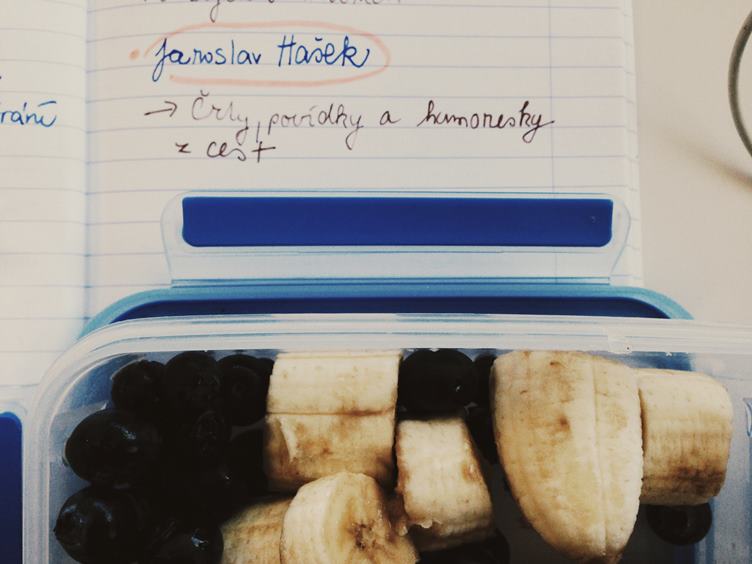 Jaroslav Hašek
raní
→ Črty, povídky a humoresky
z cest